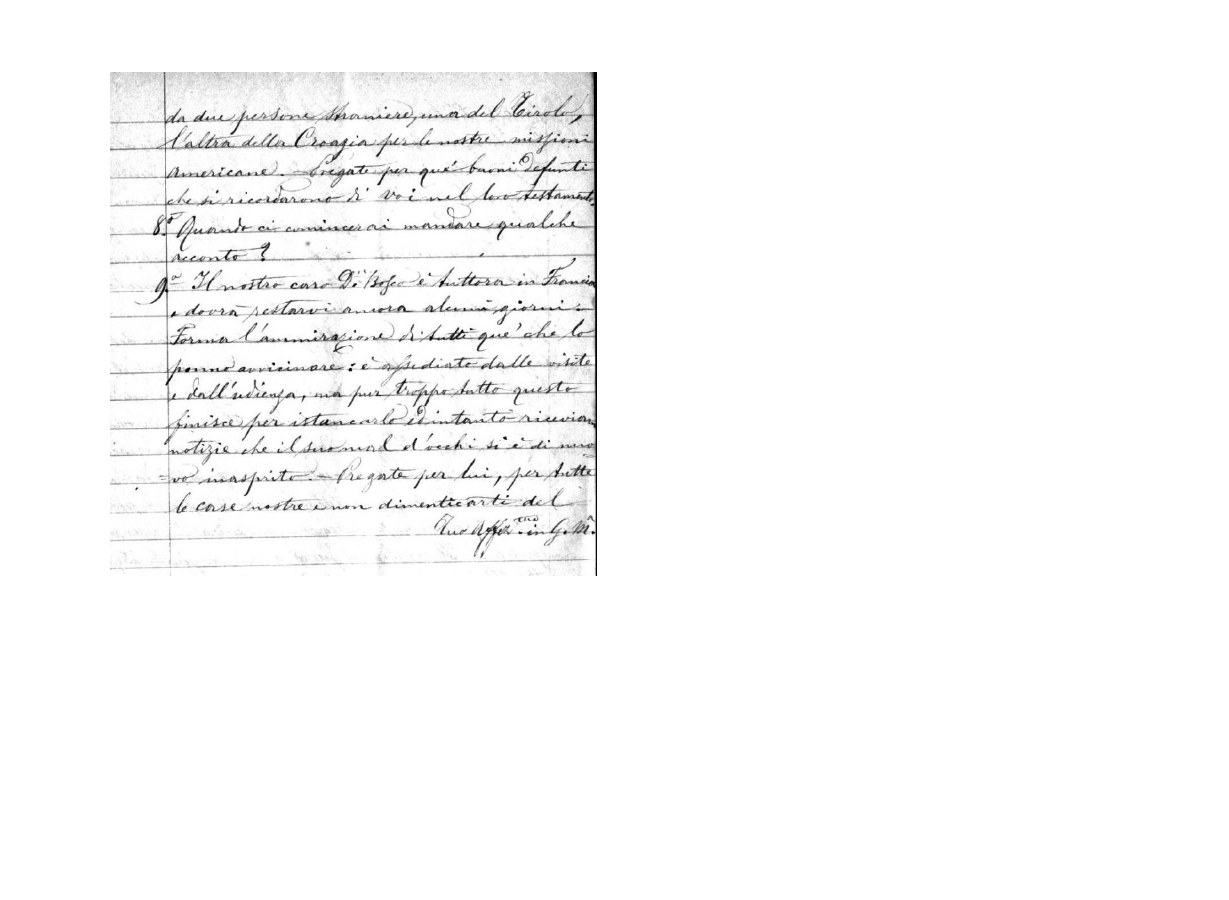 da due persone straniere, una del Tirolo,
l'altra della Croazia per le nostre missioni
americane. - Pregate per qué buoni defunti
che si ricordarono di voi nel loro testamento.
8.º Quando ci comincerai mandare qualche
acconto?
9.º Il nostro caro Dⁿ Bosco è tuttora in Francia
e dovrà restarvi ancora alcuni giorni.
Forma l'ammirazione di tutti qué che lo
ponno avvicinare: è assediato dalle visite
e dall'udienza, ma pur troppo tutto questo
finisce per istancarlo ed intanto riceviam
notizie che il suo mal d'occhi si è di nuo
=vo inasprito. - Pregate per lui, per tutte
le case nostre e non dimenticarti del
Tuo Affez.mo in G. M.